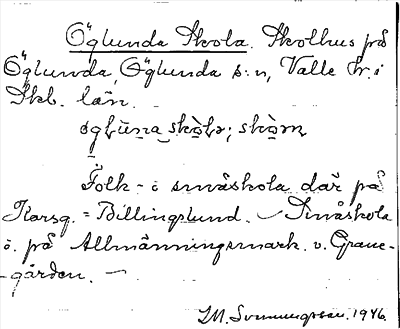 Öglunda Skola. Skolhus på
Öglunda, Öglunda s:n, Valle hr. i
Skb. län.
øglùna skòlạ; skòm
Folk- i småskola där på
Karsg. = Billingslund. – Småskola
ö. på Allmänningsmark. v. Grane-
-gården. –
I.M. Svenungsson. 1946.